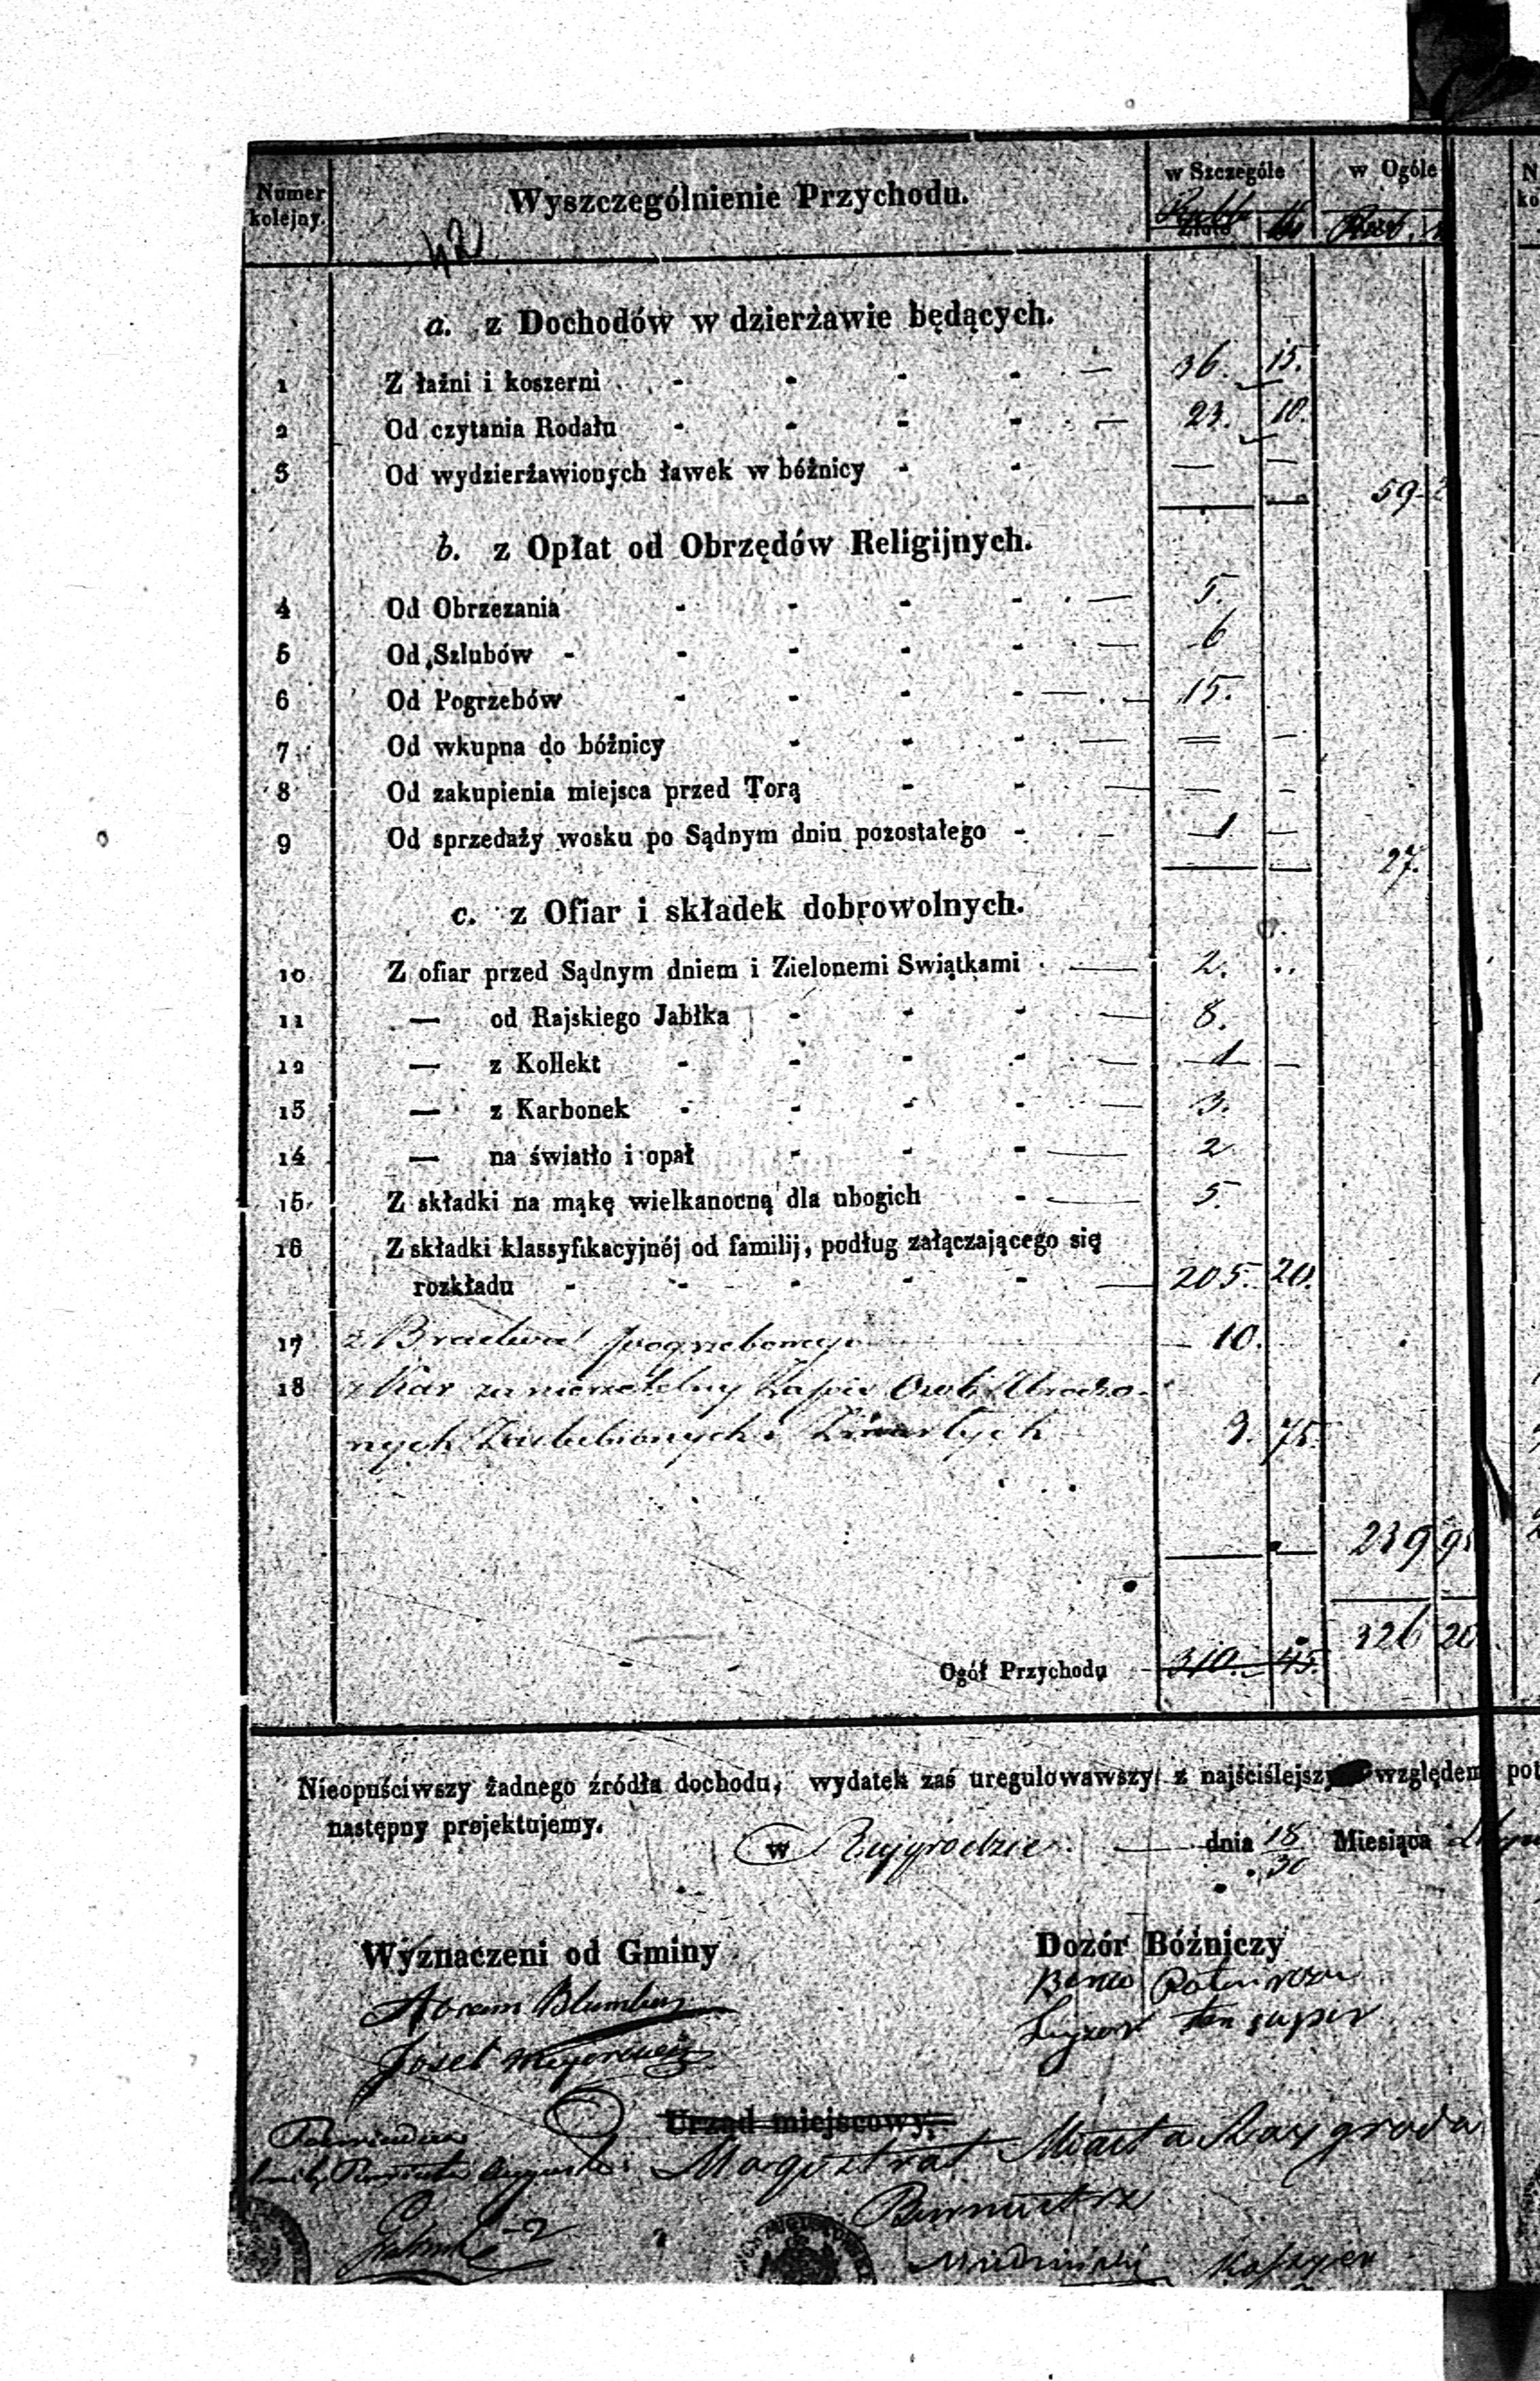 Numer kolejny.
Wyszczególnienie Przychodu.
w Szczególe
w Ogóle
42
a. z Dochodów w dzierżawie będących.
1 Z łaźni i koszerni - - - - — 36. 15.
2 Od czytania Rodału - - - - — 23. 10.
3 Od wydzierżawionych ławek w bóżnicy - - — —
59
b. z Opłat od Obrzędów Religijnych.
4 Od Obrzezania - - - - — 5.
5 Od Szlubów - - - - - — 6
6 Od Pogrzebów - - - - — 15.
7 Od wkupna do bóżnicy - - - — — —
8 Od zakupienia miejsca przed Torą - - — — —
9 Od sprzedaży wosku po Sądnym dniu pozostałego - - 1 —
27.
c. z Ofiar i składek dobrowolnych.
10 Z ofiar przed Sądnym dniem i Zielonemi Swiątkami — 2.
11 — od Rajskiego Jabłka - - - — 8.
12 — z Kollekt - - - - — 1 —
13 — z Karbonek - - - - — 3.
14 — na światło i opał - - - — 2
15 Z składki na mąkę wielkanocną dla ubogich - — 5.
16 Z składki klassyfikacyjnéj od familij, podług załączającego się
rozkładu - - - - - — 205. 20.
17 z Bractwa pogrzebowego — 10.
18 z Kar za nierzetelny Zapis Osób Urodzo-
nych Zaślubionych i Zmarłych 9. 75.
239
326 20
Ogół Przychodu - 310. 45.
Nieopuściwszy żadnego źródła dochodu, wydatek zaś uregulowawszy z najściślejszym względem
następny projektujemy.
w Raygrodzie dnia 18/30 Miesiąca
Wyznaczeni od Gminy
Dozór Bóźniczy
Josel
Urząd miejscowy,
Magistrat Miasta Raygroda
Burmistrz